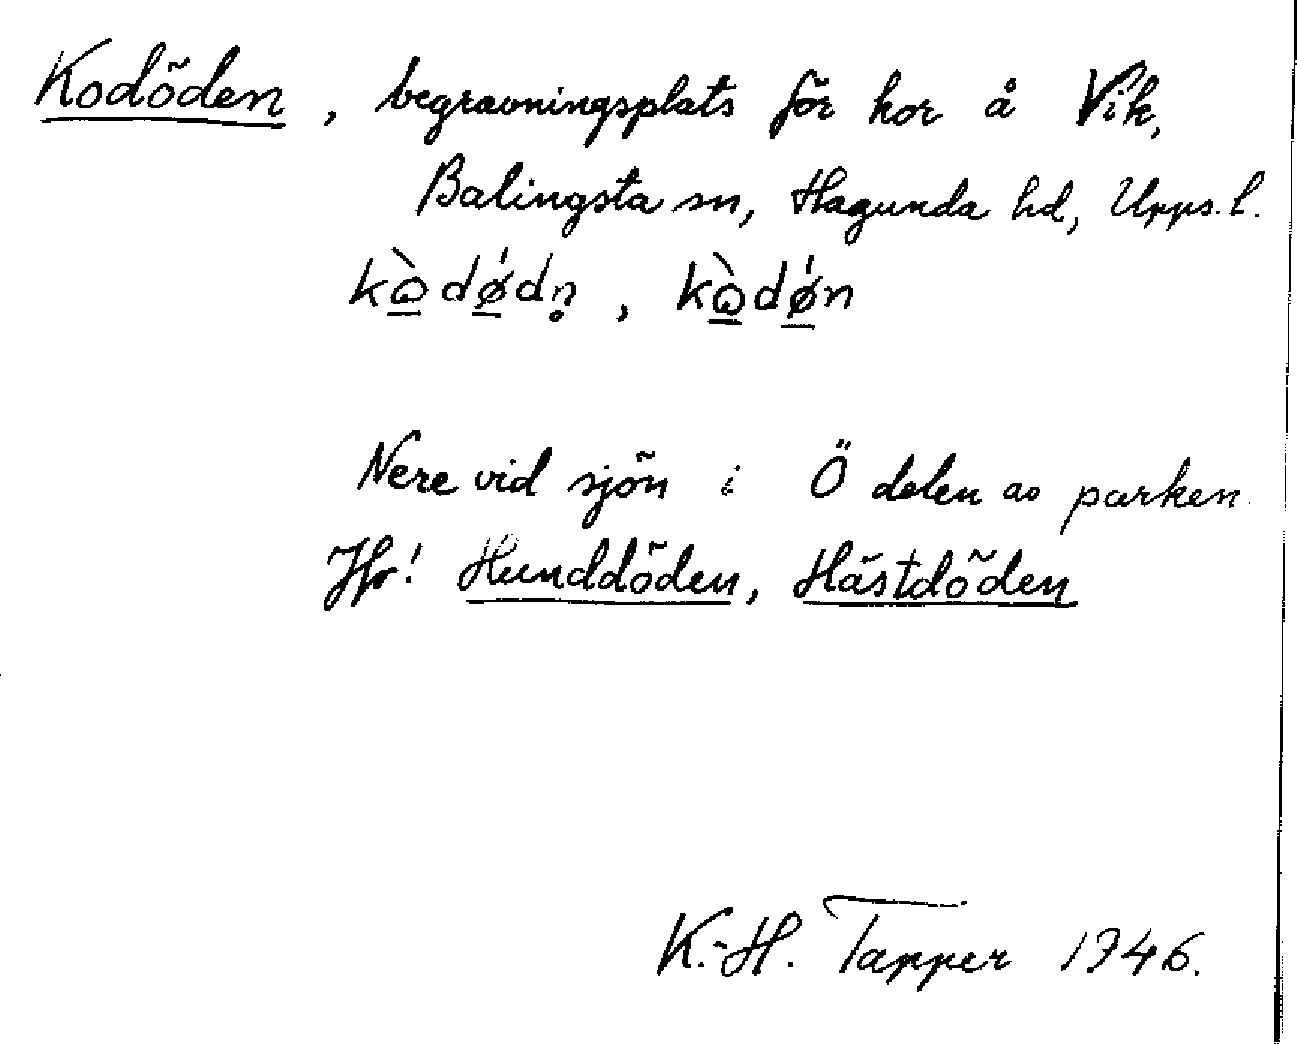 Kodöden, begravningsplats för kor å Vik,
Balingsta sn, Hagunda hd, Upps. l.
kò̱dǿ̱dn̥, kò̱dǿ̱n
Nere vid sjön i Ö delen av parken.
Jfr! Hunddöden, Hästdöden
K.-H. Tapper 1946.